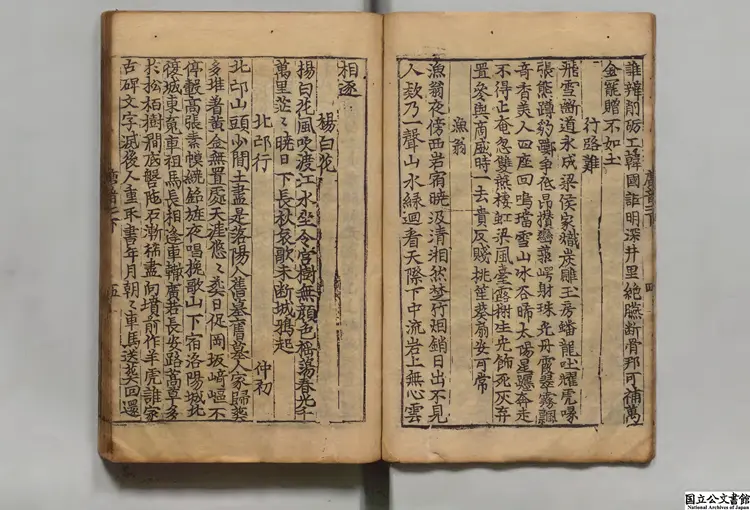 誰辨削砺工韓國詎明深井里絶臙断骨那可補萬
金寵贈不如土
行路難
飛雪断道氷成梁侯家熾炭雕玉房蟠龍吐耀虎喙
張熊蹲豹躑爭低昂攢巒叢崿射珠光丹霞翠霧飄
奇香美人四座回鳴璫雪山氷谷晞太陽星躔奔走
不得止奄忽雙燕棲虹梁風臺露榭生光飾死灰弃
置參與商盛時一去貴反賤桃笙葵扇安可常
漁翁
漁翁夜傍西岩宿暁汲清湘然楚竹烟銷日出不見
人欸乃一聲山水緑迴看天際下中流岩上無心雲
相逐
楊白花
楊白花風吹渡江水坐令宮樹無顔色揺蕩春光千
萬里茫〻暁日下長秋哀歌未断城鴉起
北邙行 仲初
北邙山頭少閑土盡是洛陽人舊墓舊墓人家歸葬
多堆着黄金無置處天涯悠〻葬日促岡坂崎嶇不
停轂高張素幙繞銘旌夜唱挽歌山下宿洛陽城北
復城東魂車祖馬長相逢車轍廣若長安路蒿草多
於松栢樹澗底盤陀石漸稀盡向墳前作羊虎誰家
古碑文字滅後人重取書年月朝〻車馬送葬回還
国立公文書館
National Archives of Japan